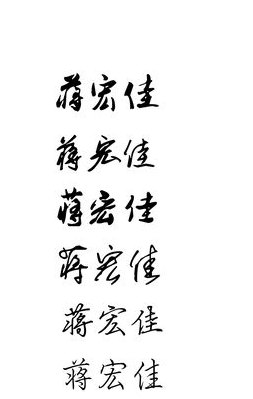 蒋宏佳
蒋宏佳
蒋宏佳
蒋宏佳
蒋宏佳
蒋宏佳